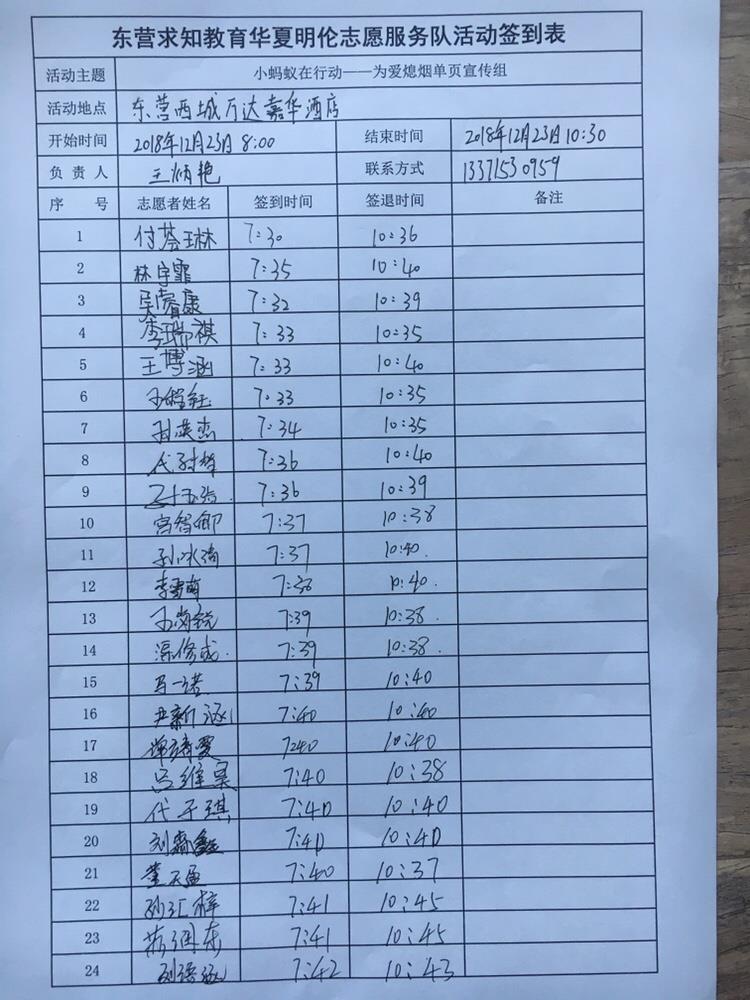 东营求知教育华夏明伦志愿服务队活动签到表
活动主题 小蚂蚁在行动——为爱熄烟单页宣传组
活动地点 东营西城万达嘉华酒店
开始时间 2018年12月23日 8:00 结束时间 2018年12月23日 10:30
负责人 王炳艳 联系方式 13371530959
序号 志愿者姓名 签到时间 签退时间 备注
1 付荟琳 7:30 10:36
2 林宇霏 7:35 10:40
3 吴睿康 7:32 10:39
4 李瑞祺 7:33 10:35
5 王博涵 7:33 10:40
6 7:33 10:35
7 孙英杰 7:34 10:35
8 7:36 10:40
9 7:36 10:39
10 宫智卿 7:37 10:38
11 孙冰琦 7:37 10:40.
12 李雪萌 7:38 10:40.
13 7:39 10:38.
14 7:39 10:38.
15 马一诺 7:39 10:40
16 尹新涵 7:40 10:40
17 7:40 10:40
18 吕维昊 7:40 10:38
19 代子琪 7:40 10:40
20 刘鑫 7:40 10:40
21 董天逸 7:40 10:37
22 孙汇梓 7:41 10:45
23 苏润东 7:41 10:45
24 刘语涵 7:42 10:43